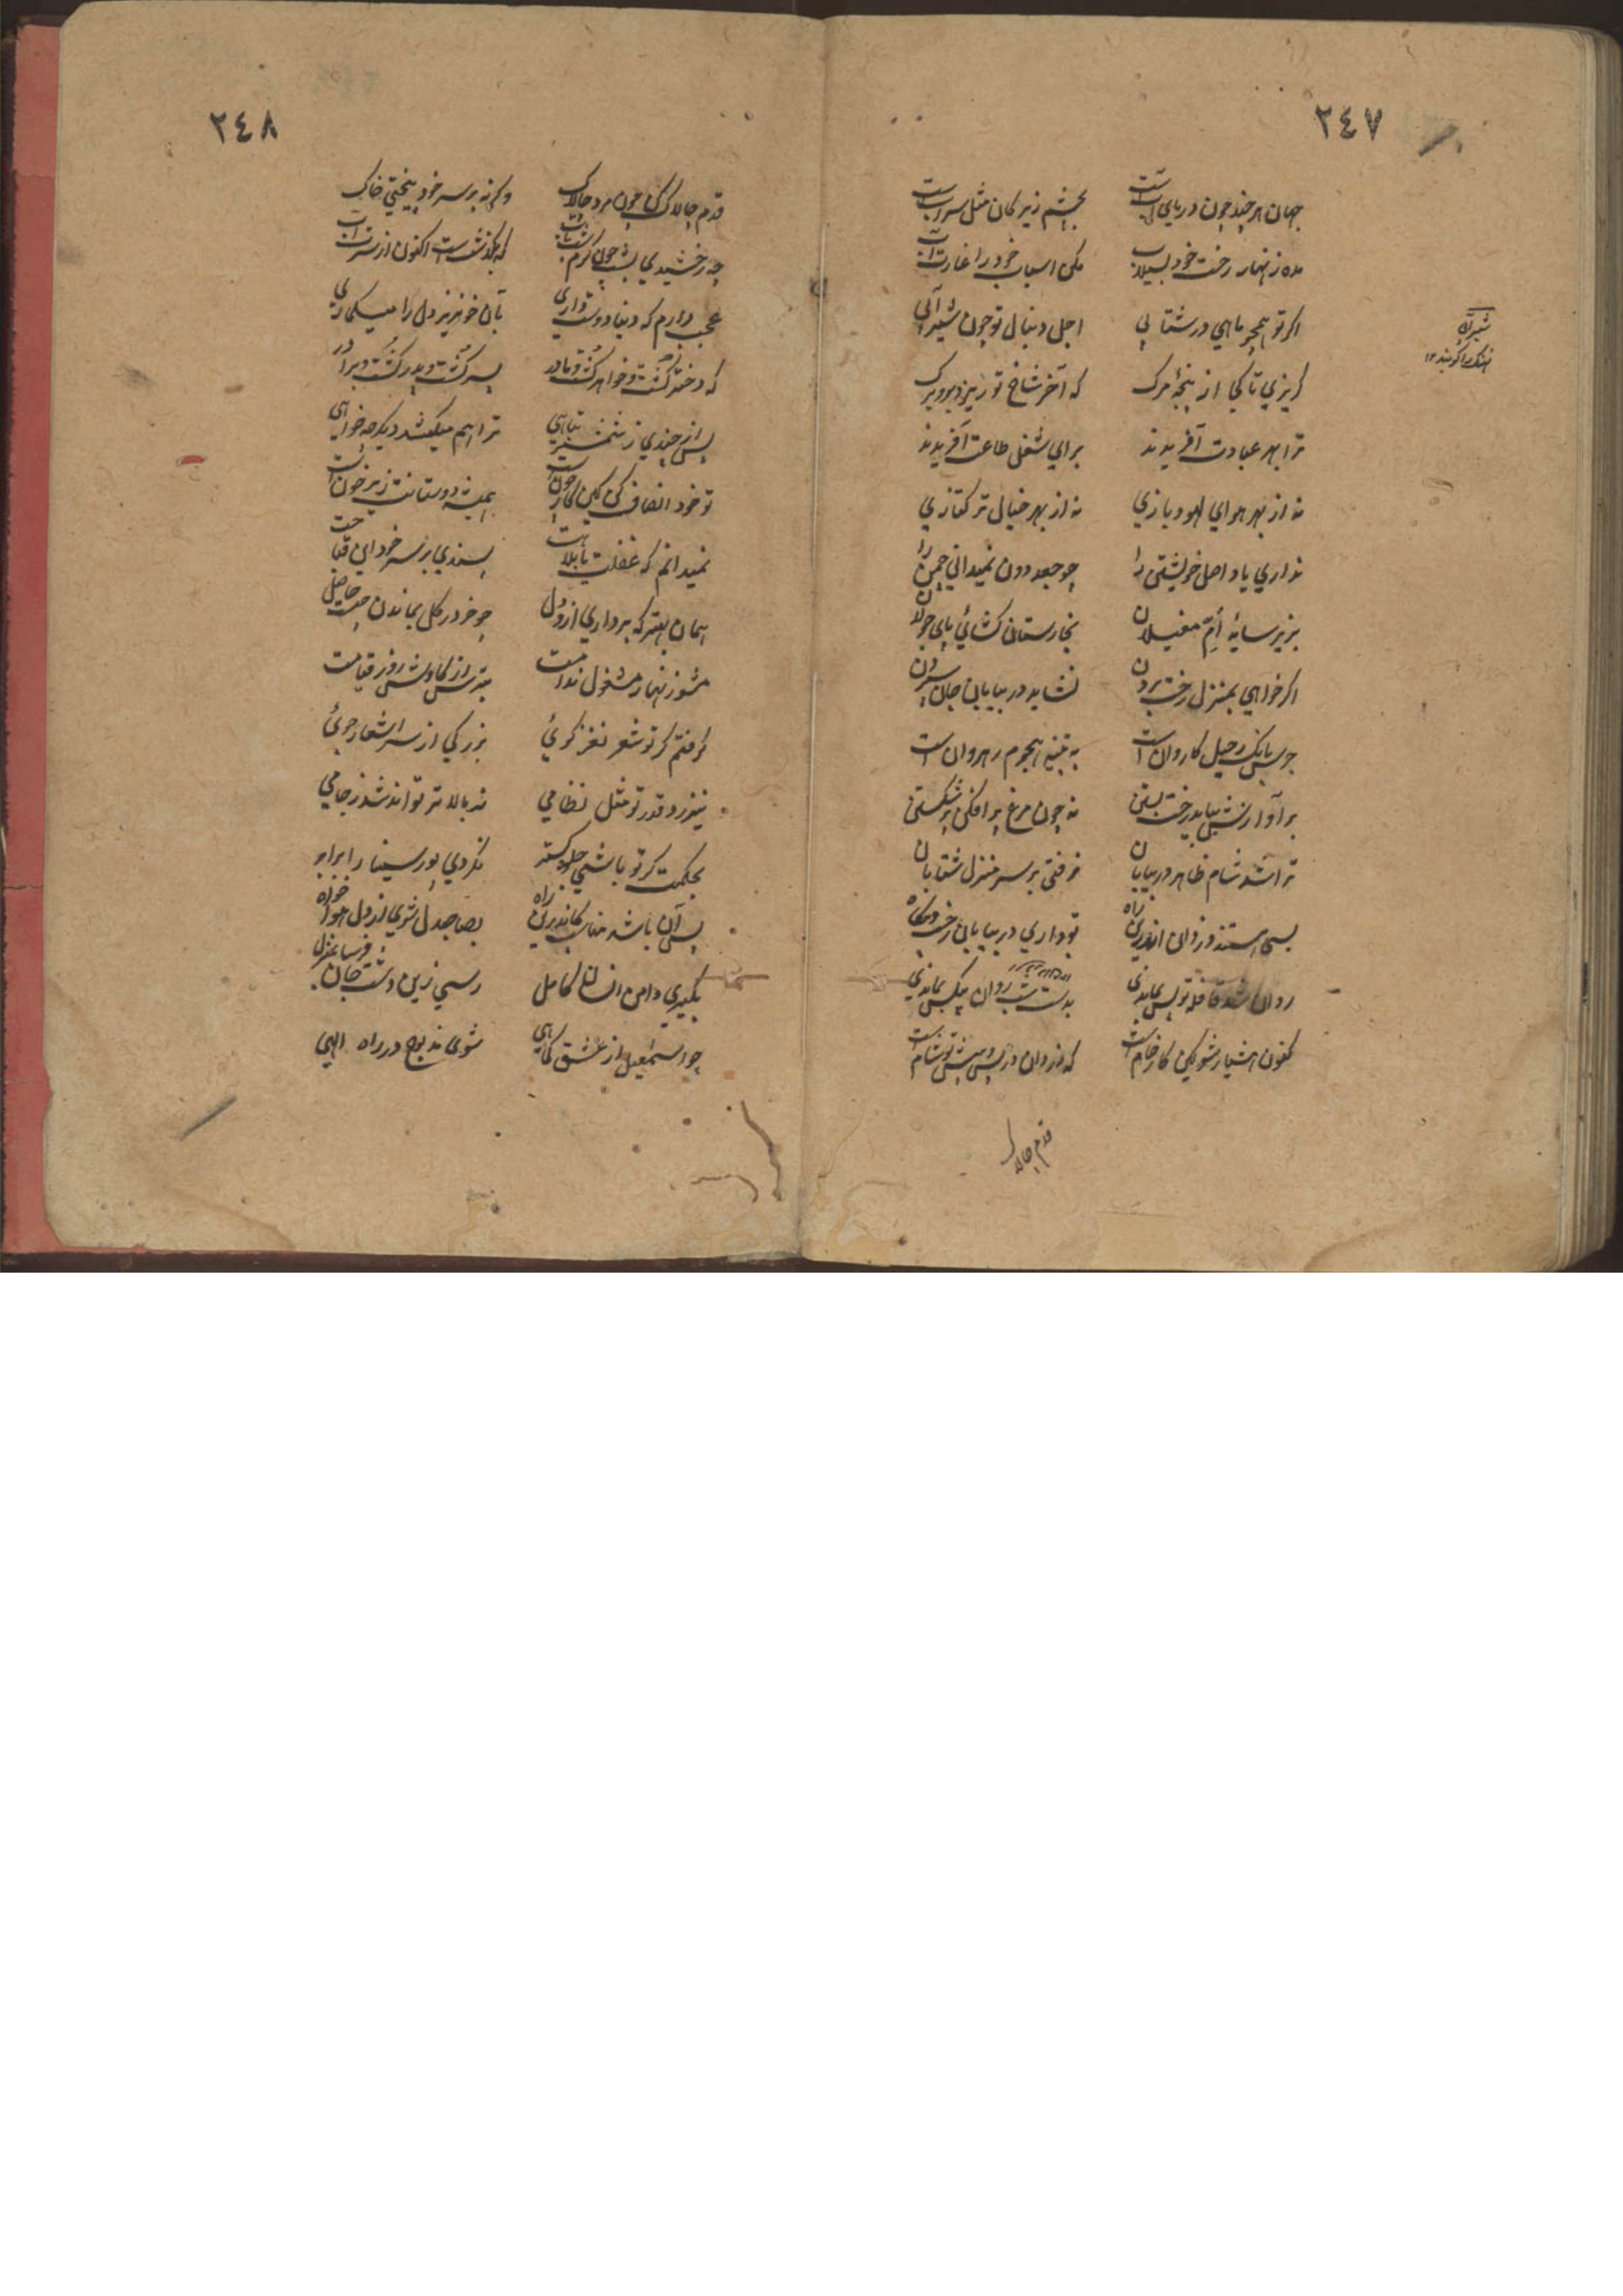 ٢٤٧
جهان هر چند چون دریای آبست بچشم زیرکان مثل سرابست
مده زنهار رخت خود بسیلاب مکن اسباب خود را غارت آب
اگر تو همچو ماهی در شتابی اجل دنبال تو چون شیر آبی
شیر آبی
نهنگ را گویند ١٢
گریزی تا کجا از پنجهٔ مرگ که آخر شاخ تو ریزد برو برگ
ترا بهر عبادت آفریدند برای شغل طاعت آفریدند
نه از بهر هوای لهو و بازی نه از بهر خیال ترکتازی
نداری یاد اصل خویشتن را چو جغد دون نمیدانی چمن را
بزیر سایهٔ اُمّ مغیلان بخارستان کشائی پای جولان
اگر خواهی بمنزل رخت بردن نشاید در بیابان جان سپردن
جرس بانگ رحیل کاروانست به تنبیه هجوم رهروانست
بر آوازش بباید رخت بستن نه چون مرغ پر افکن پر شکستن
ترا شد شام ظاهر در بیابان نرفتی بر سر منزل شتابان
بسی هستند دزدان اندرین راه تو داری در بیابان رخت و بنگاه
روان شد قافله تو پس بماندی بدشت شب روان بیکس بماندی
کنون هشیار شو لیکن کار خامست که دزدان در پس و پیش تو شامست
قدم چالاک
٢٤٨
قدم چالاک کن چون مرد چالاک وگرنه بر سر خود بیختی خاک
چه رخشیدی بشب چون کرم شبتاب که بگذشتست اکنون از سرت آب
عجب دارم که دنیا دوست داری بآن خونریز دل را میسپاری
که دختر کُشت و خواهر کُشت و مادر پسر کُشت و پدر کُشت و برادر
پس از چندی ز شمشیر تباهی ترا هم میکشد دیگر چه خواهی
تو خود انصاف کن کین کار چونست همیشه دوستانت زیر خونست
نمیدانم که غفلت یا بلاهت پسندی بر سر خود این قباحت
همان بهتر که برداری ازو دل چو خر در گل بماندن چیست حاصل
مشو زنهار مشغول ندامت بترس از کاوش روز قیامت
گرفتم گر تو شعر نغز گوئی بزرگی از سر اشعار جوئی
نیفزود قدر تو مثل نظامی نه بالاتر توانه شد ز جامی
بحکمت گر تو باشی جلوه گستر نگردی پور سینا را برابر
پس آن باشد مناسب کاندرین راه بصاحبدل شوی از دل هواخواه
بگیری دامن انسان کامل رسی زین دشت جان فرسا بمنزل
چو اسمٰعیل از عشق کماهی شوی مذبوح در راه الهی